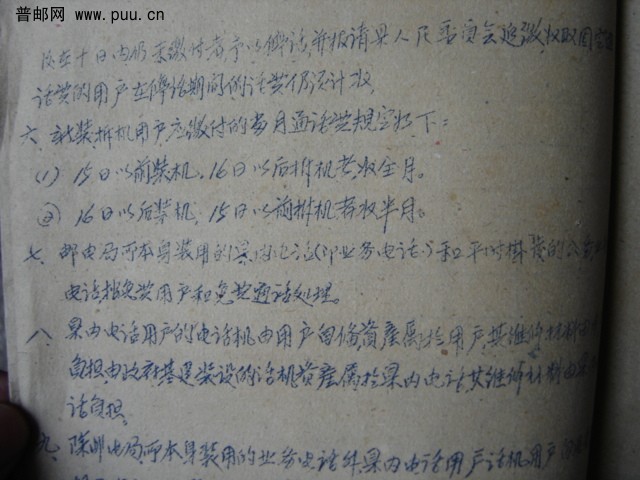 普邮网
www.puu.cn
限在十日内仍未缴付者予以停话并报请县人民委员会追缴
话费的用户在停话期间的话费仍须计收
六、新装拆机用户应缴付的当月通话费规定如下：
(1) 15日以前装机，16日以后拆机者收全月。
(2) 16日以后装机，15日以前拆机者收半月。
七、邮电局所本身装用的县内电话(即业务电话)和
电话按免费用户和免费通话处理。
八、县内电话用户的电话机由用户自备资产属于用户其维修材料
负担由政府基建装设的话机资产属于县内电话其维修材料由县
话负担
九、除邮电局所本身装用的业务电话外县内电话用户话机用户